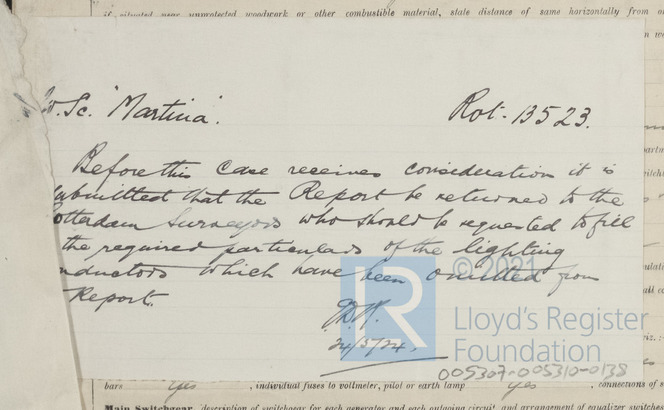 if situated near unprotected woodwork or other combustible material, state distance of same horizontally from or
Sc. "Martina". Rot. 13523.
Before this case receives consideration it is
submitted that the Report be returned to the
Rotterdam Surveyors who should be requested to fill
the required particulars of the lighting
conductors which have been omitted from
Report.
24/3/24.
© 2021
Lloyd's Register
Foundation
005307-005310-0138
bars yes , individual fuses to voltmeter, pilot or earth lamp yes , connections of s
Main Switchgear, description of switchgear for each generator and each outgoing circuit, and arrangement of equalizer switches